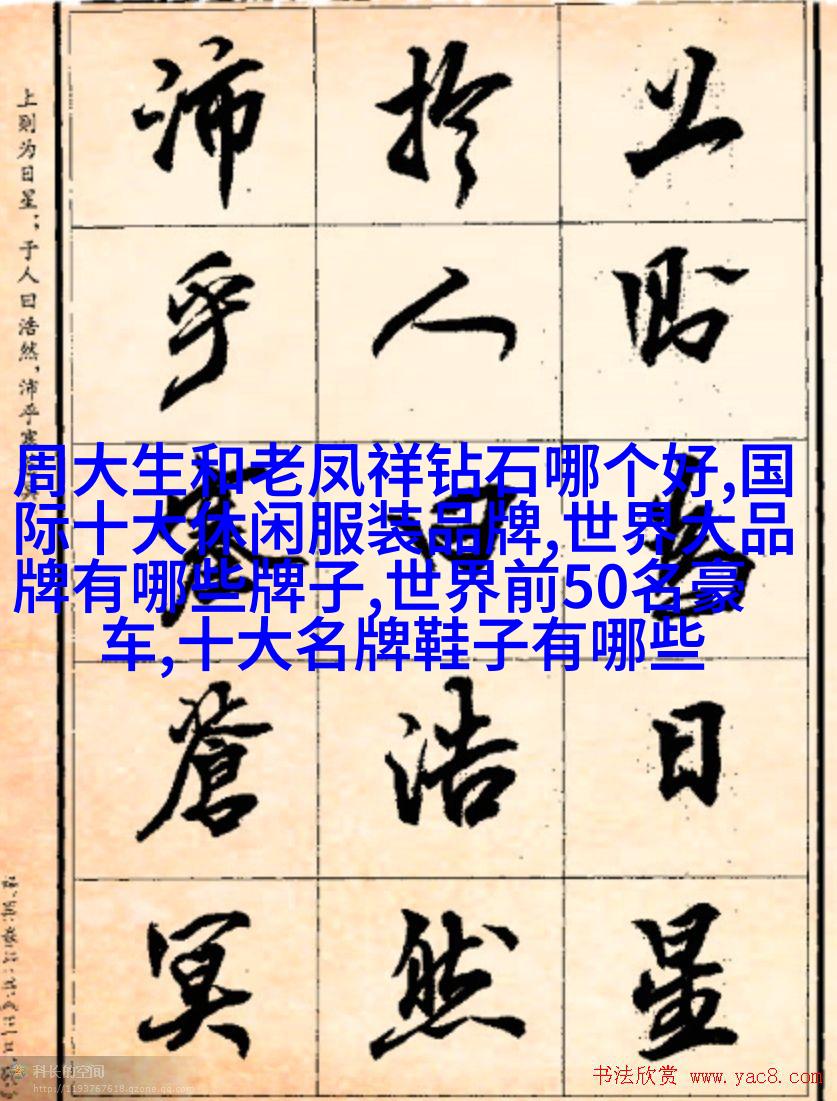 上則為日星
於人曰浩然
沛乎塞蒼冥
上则为日星；于人曰浩然，沛乎
周大生和老凤祥钻石哪个好,国
际十大休闲服装品牌,世界大品
牌有哪些牌子,世界前50名豪
车,十大名牌鞋子有哪些
科长的空间
http://1193767618.qzone.qq.com
书法欣赏 www.yac8.com